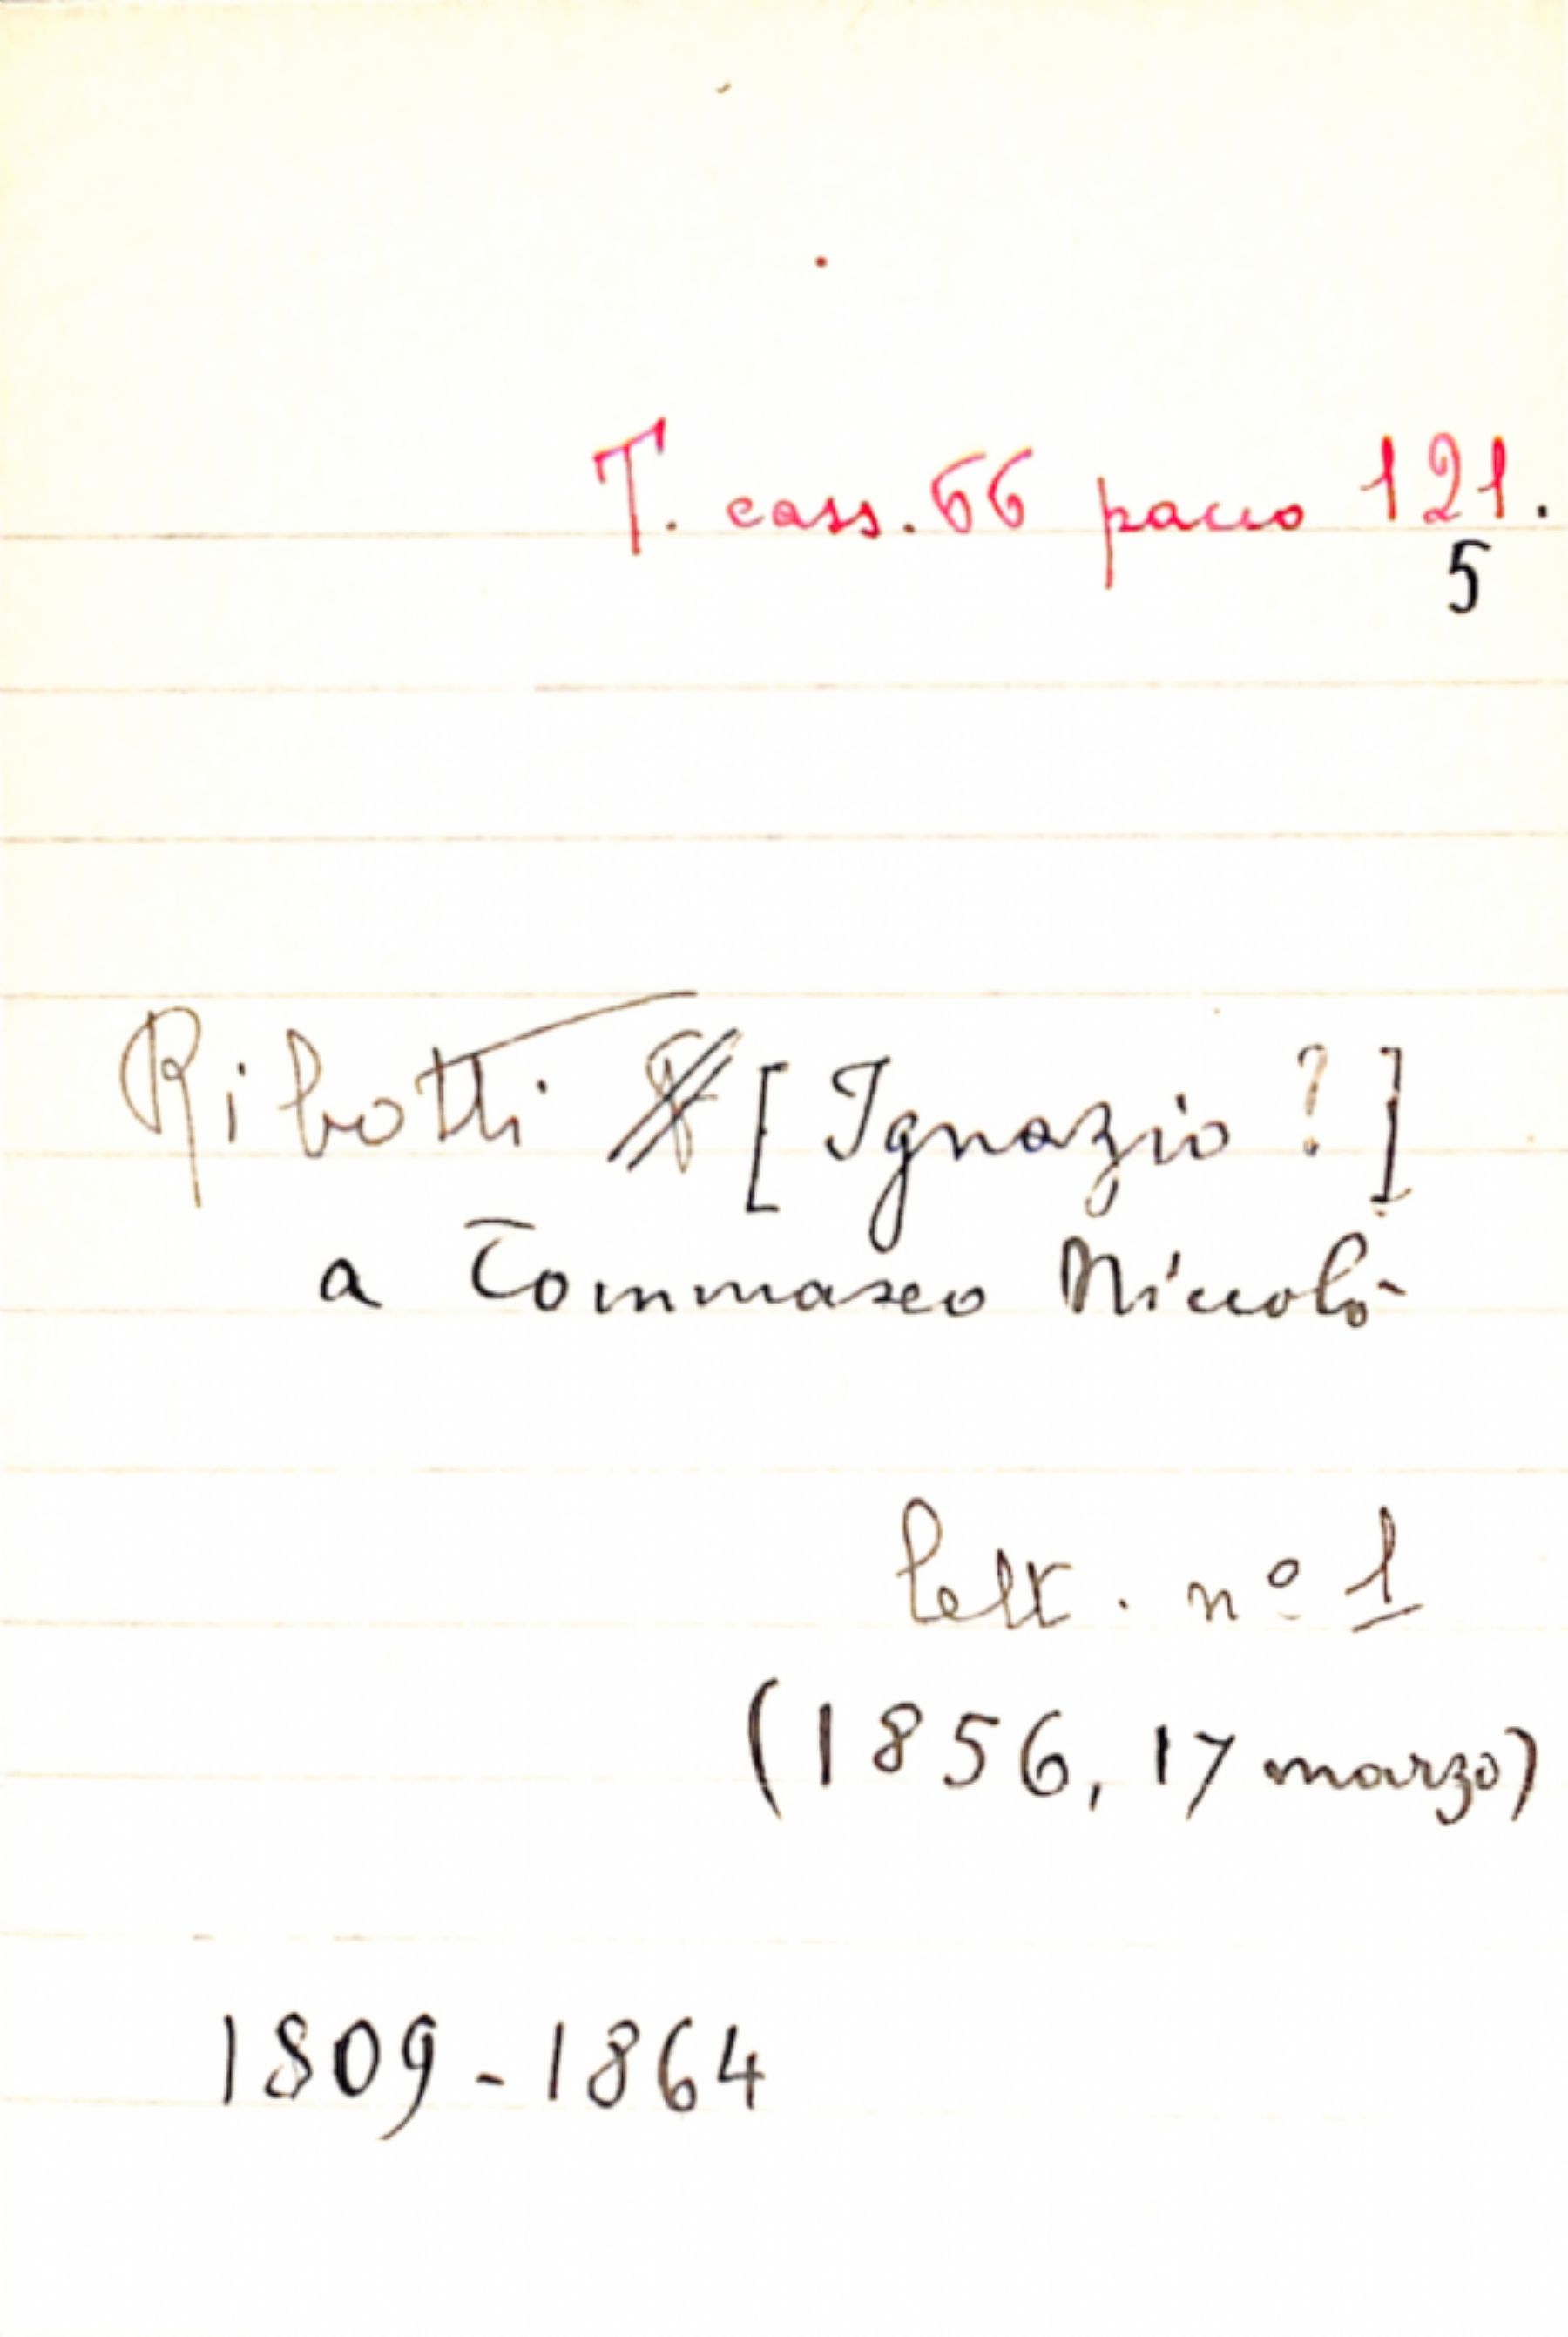 T. cass. 66 pacco 121.
5
Ribotti [Ignazio ?]
a Tommaseo Niccolò
lett. nº 1
(1856, 17 marzo)
1809-1864